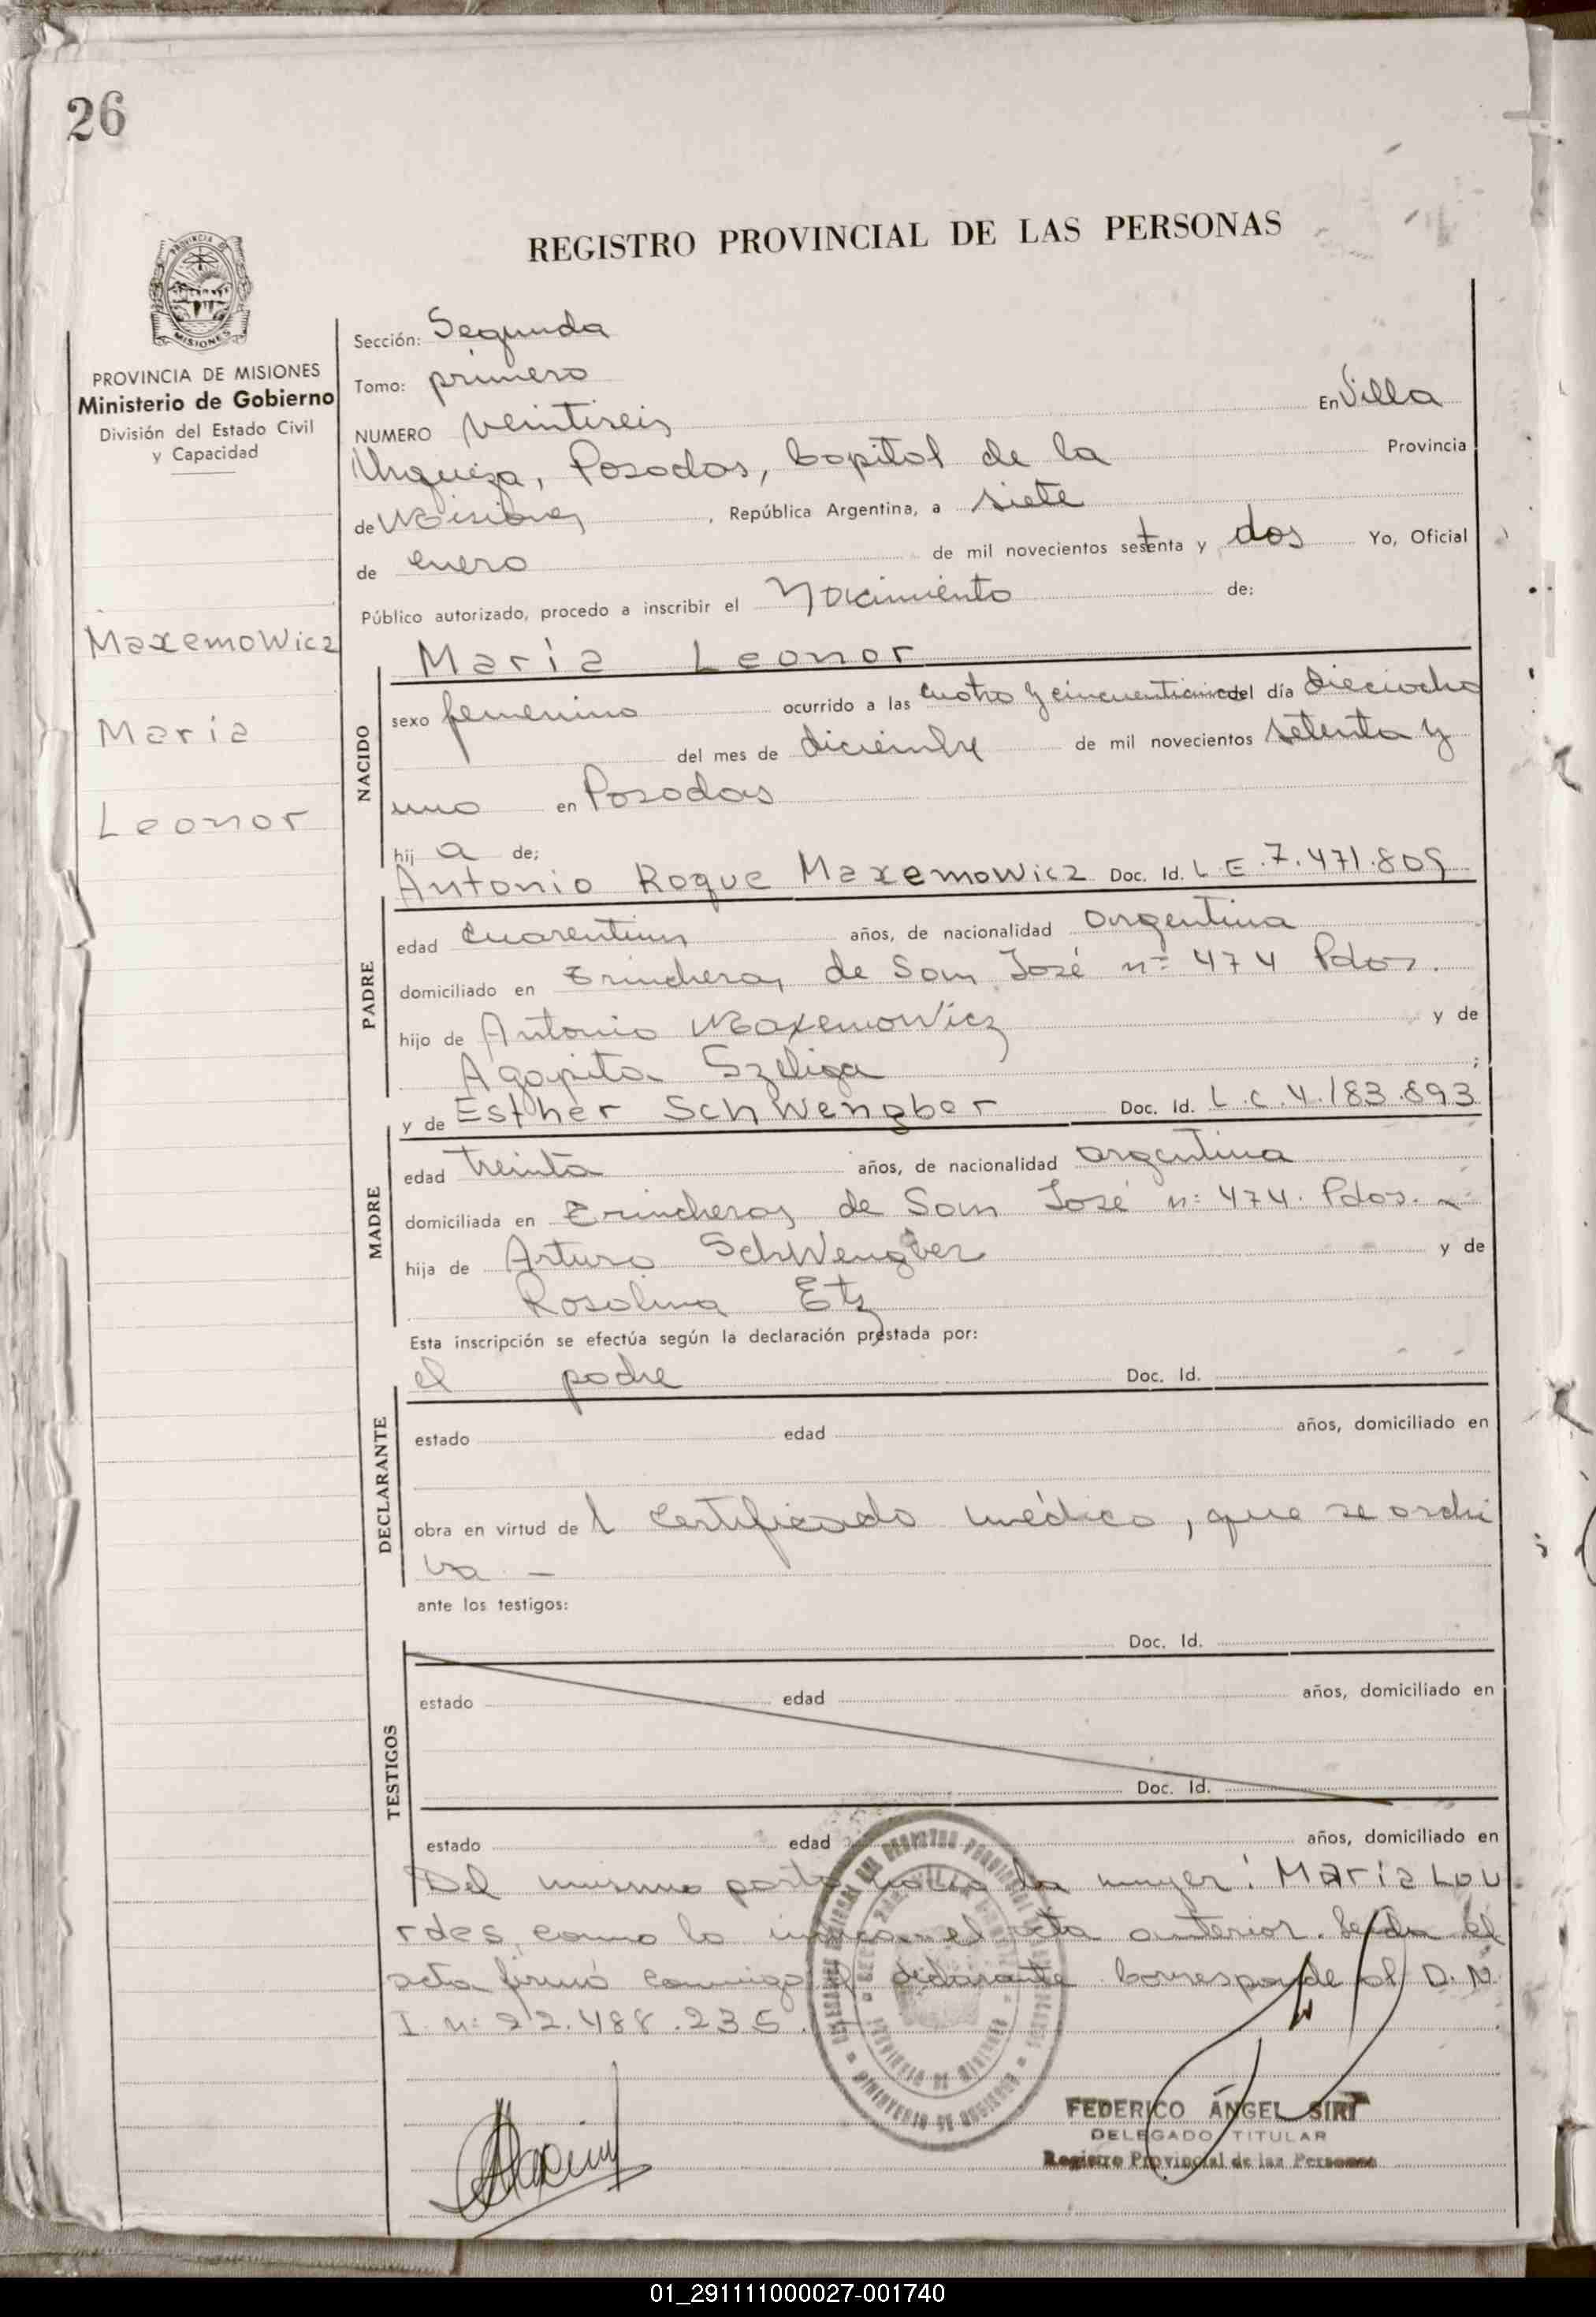 26
REGISTRO PROVINCIAL DE LAS PERSONAS
PROVINCIA DE MISIONES
MISIONES
PROVINCIA DE MISIONES
Ministerio de Gobierno
División del Estado Civil
y Capacidad
Maxemowicz
Maria
Leonor
Sección: Segunda
Tomo: primero
NUMERO veintiseis En Villa
Urquiza, Posadas, Capital de la Provincia
de Misiones, República Argentina, a siete
de enero de mil novecientos setenta y dos Yo, Oficial
Público autorizado, procedo a inscribir el Nacimiento de:
María Leonor
NACIDO
sexo femenino ocurrido a las cuatro y cincuenticinco del día dieciocho
del mes de diciembre de mil novecientos setenta y
uno en Posadas
hij a de;
Antonio Roque Maxemowicz Doc. Id. L.E. 7.471.809
PADRE
edad cuarentiun años, de nacionalidad argentina
domiciliado en Trincheras de San José n= 474 Pdas.
hijo de Antonio Maxemowicz y de
Agapita Szeliga ;
y de Esther Schwengber Doc. Id. L.C. 4.183.893
MADRE
edad treinta años, de nacionalidad argentina
domiciliada en Trincheras de San José n= 474. Pdas.
hija de Arturo Schwengber y de
Rosalina Etz
Esta inscripción se efectúa según la declaración prestada por:
el padre Doc. Id.
DECLARANTE
estado edad años, domiciliado en
obra en virtud de l certificado médico, que se archi
va -
ante los testigos:
Doc. Id.
TESTIGOS
estado edad años, domiciliado en
Doc. Id.
estado edad años, domiciliado en
Del mismo parto nació la mujer: María Lou
rdes, como lo indica el acta anterior. Leida el
acta firmó conmigo el declarante Corresponde al D.N.
I. n= 22.488.235.
FEDERICO ANGEL SIRI
DELEGADO TITULAR
Registro Provincial de las Personas
01_291111000027-001740